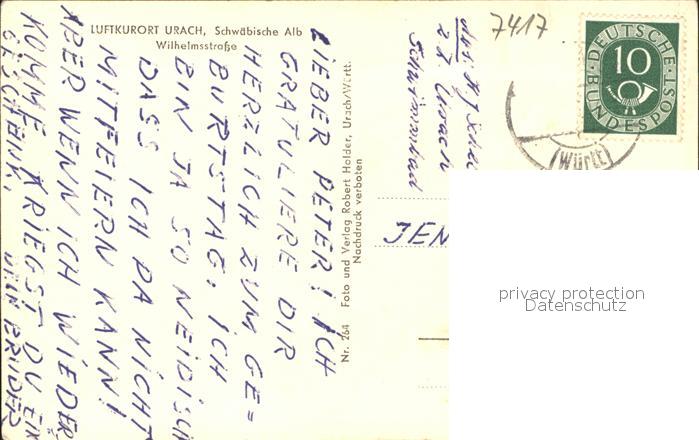 LUFTKURORT URACH, Schwäbische Alb
Wilhelmsstraße
LIEBER PETER! ICH
GRATULIERE DIR
HERZLICH ZUM GE=
BURTSTAG. ICH
BIN JA SO NEIDISCH
DASS ICH DA NICHT
MITFEIERN KANN!
ABER WENN ICH WIEDER
KOMME KRIEGST DU EIN
GESCHENK.
DEIN BRUDER
Nr. 264 Foto und Verlag Robert Holder, Urach/Württ.
Nachdruck verboten
7417
Urach
JEN
DEUTSCHE
BUNDESPOST
10
(Württ)
privacy protection
Datenschutz